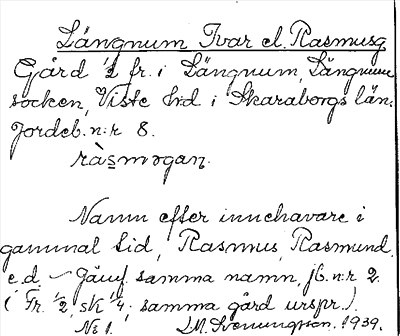 Längnum Ivar el. Rasmusg
Gård 1/2 fr. i Längnum, Längnum
socken, Viste hd i Skaraborgs län.
Jordeb. n:r 8.
Namn efter innehavare i
gammal tid, Rasmus, Rasmund
e.d. Jämf. samma namn, jb. n:r 2.
(Fr. 1/2, sk 1/4; samma gård urspr.)
No 1. M. Svenungson. 1939.